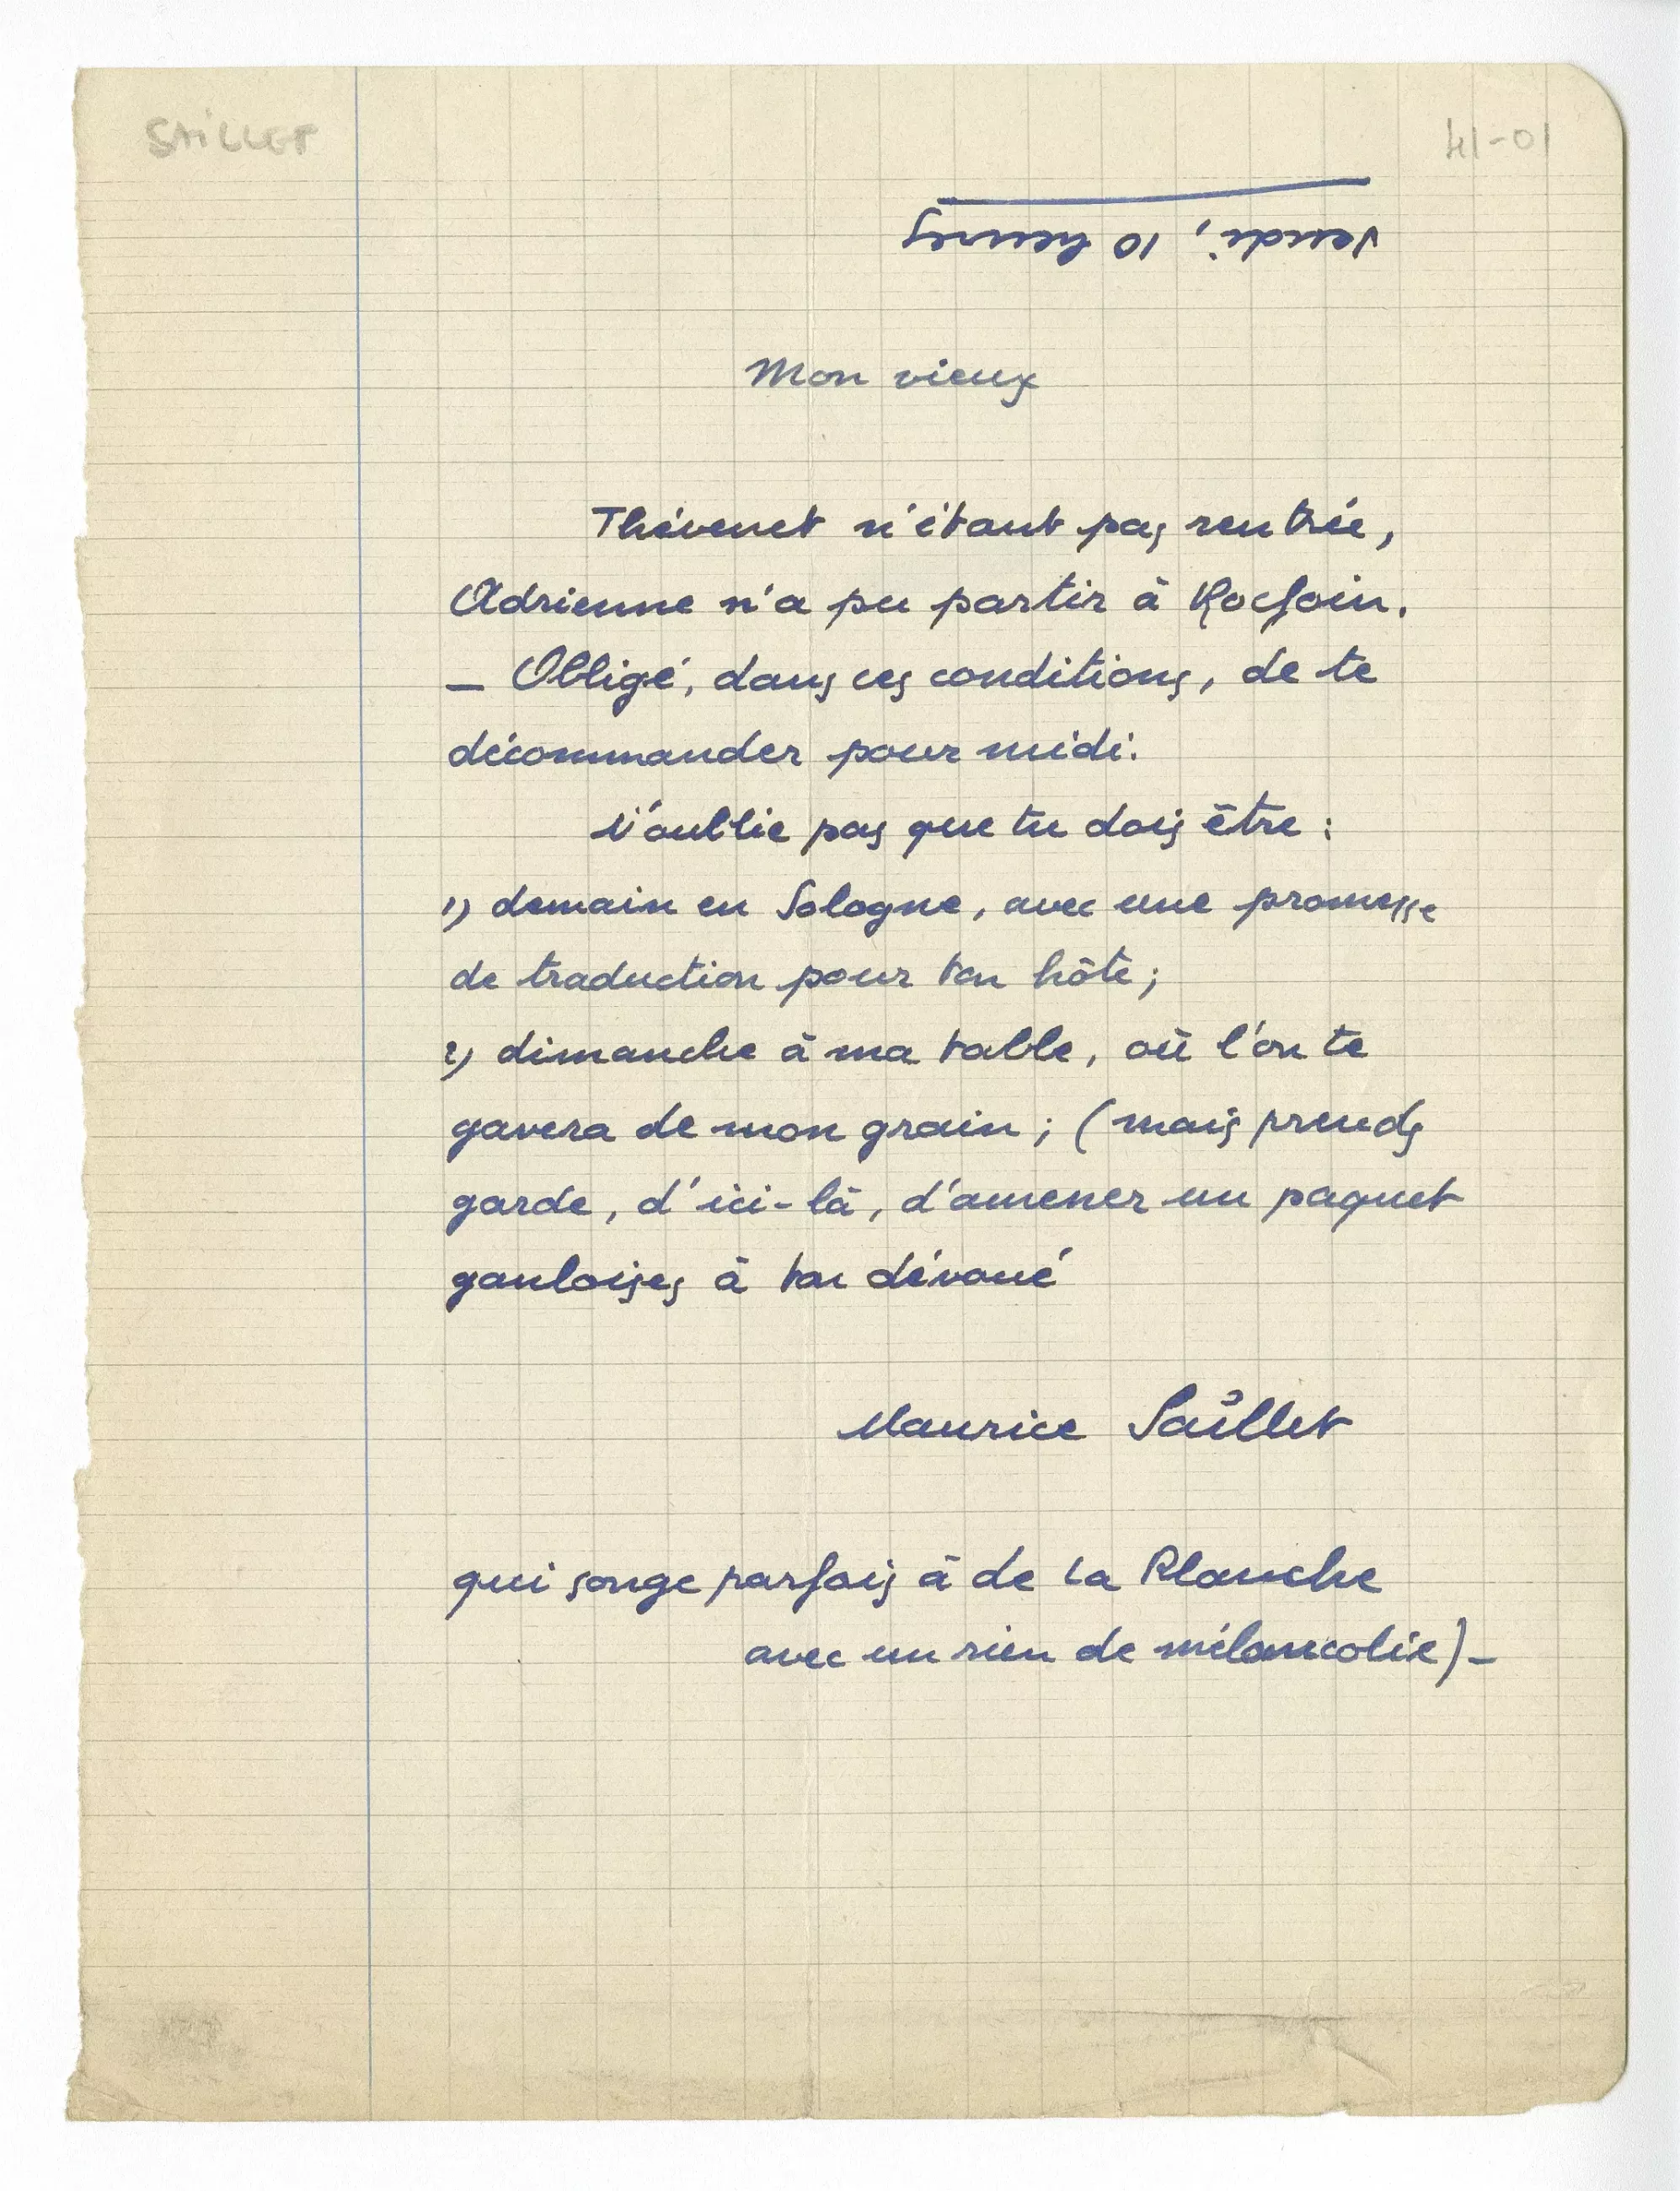 SAILLET
41-01
Vendi, 10 heures
Mon vieux
Thévenet n'étant pas rentrée,
Adrienne n'a pu partir à Rocfoin.
— Obligé, dans ces conditions, de te
décommander pour midi.
N'oublie pas que tu dois être :
1) demain en Sologne, avec une promesse
de traduction pour ton hôte ;
2) dimanche à ma table, où l'on te
gavera de mon grain ; (mais prends
garde, d'ici-là, d'amener un paquet
gauloises à ton dévoué
Maurice Saillet
qui songe parfois à de La Planche
avec un rien de mélancolie) —